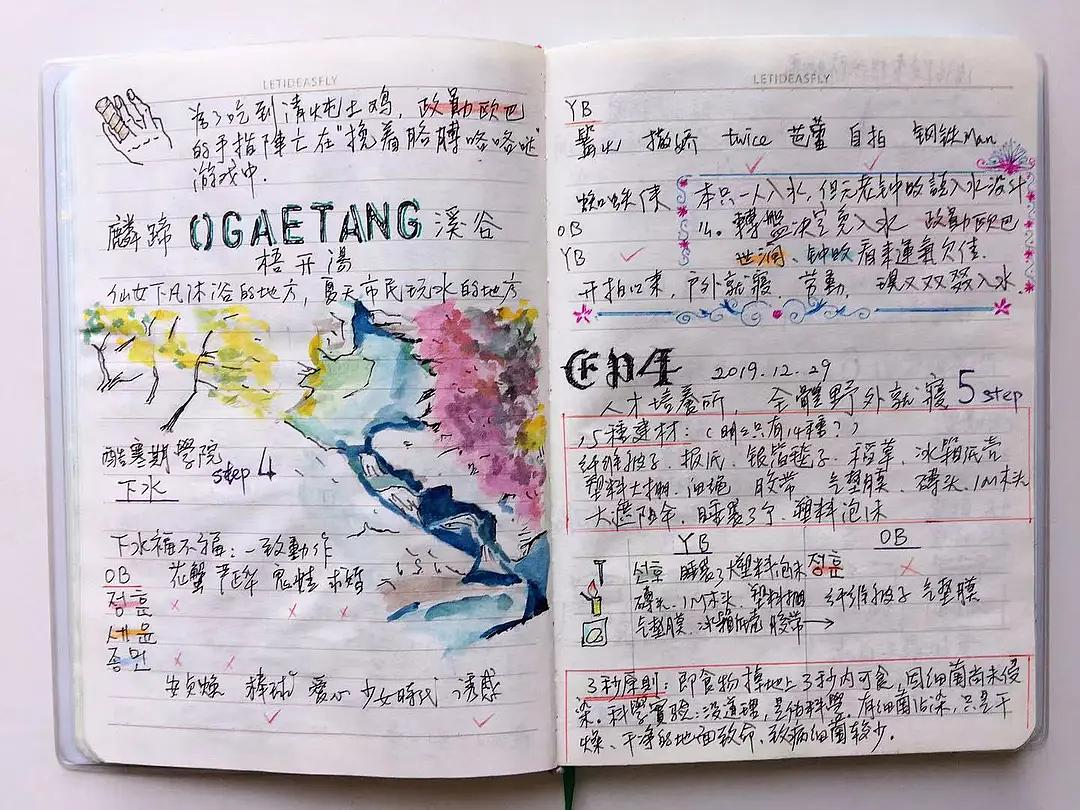 LETIDEASFLY
为了吃到清炖土鸡,政勋欧巴
的手指阵亡在"挽着胳膊咯咯哒"
游戏中.
麟蹄 OGAETANG 溪谷
梧开湯
仙女下凡沐浴的地方,夏天市民玩水的地方
酷寒期學院
step 4
下水
下水福不福:一致動作
OB 花蟹 严正 鬼怪 求婚
정훈 × × ×
세윤
종민 × ×
安贞焕 棒球 爱心 少女時代 诱惑
LETIDEASFLY
YB
撒娇 twice 芭蕾 自拍 钢铁Man
OB
YB
本只一人入水,但元老钟旼請入水没什
么。轉盤决定完入水 政勳欧巴
世润、钟旼看来運氣欠佳.
开拍以来,户外就寢 常勳, 現又双叒入水.
EP4 2019.12.29
人才培養所, 全體野外就寢 5 step
15種建材:(明明只有14種?)
纤维被子、报纸、银箔毯子、稻草、冰箱纸壳
塑料大棚、油绳 胶带 气垫膜、磚头、1M木头
大遮阳伞、睡袋3个、塑料泡沫
YB OB
선호 睡袋3 塑料泡沫 정훈 ×
磚头、1M木头、塑料棚 纤维被子 气垫膜
气垫膜、冰箱纸壳 胶带
3秒原則:即食物掉地上3秒内可食,因细菌尚未侵
染。科學實驗:没道理,是伪科學。有细菌沾染,只是干
燥、干净的地面致命、致病细菌较少.